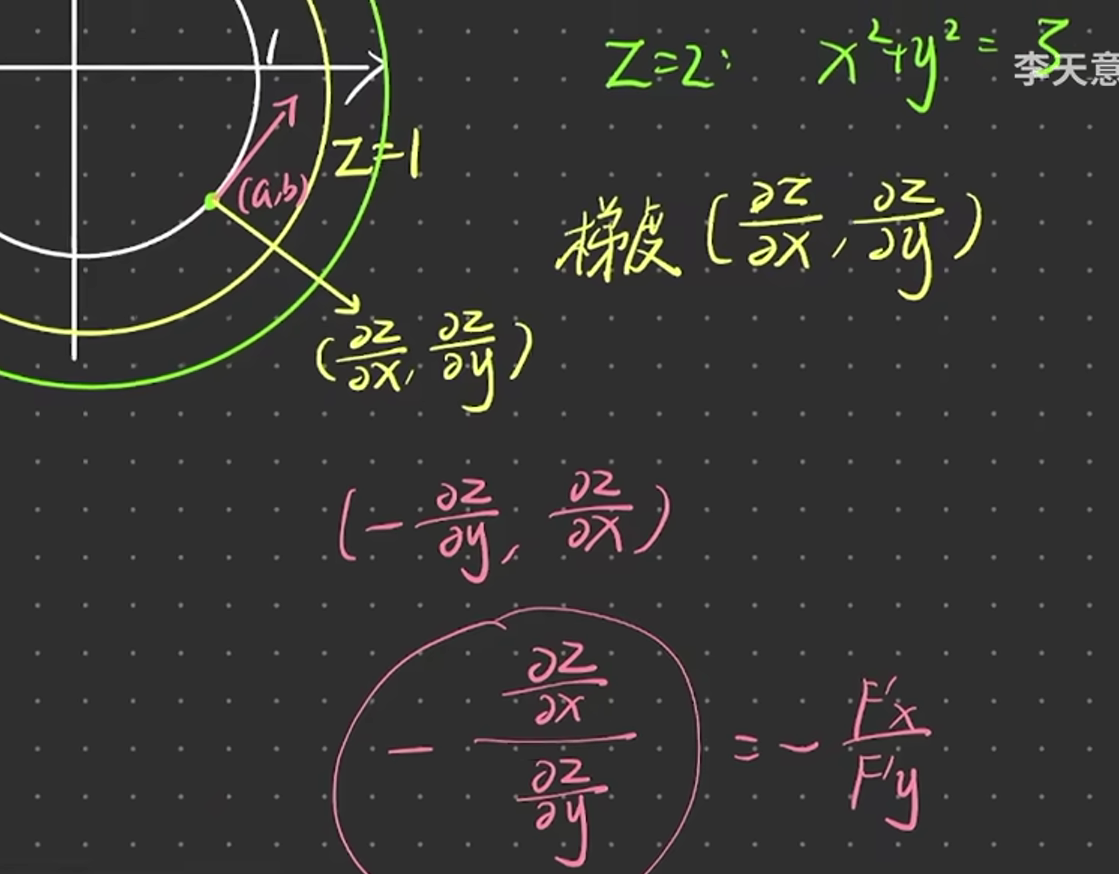 1
z=2: x²+y²=3
李天意
z=1
(a,b)
梯度 (∂z/∂x, ∂z/∂y)
(∂z/∂x, ∂z/∂y)
(-∂z/∂y, ∂z/∂x)
- (∂z/∂x)/(∂z/∂y) = - F'x/F'y